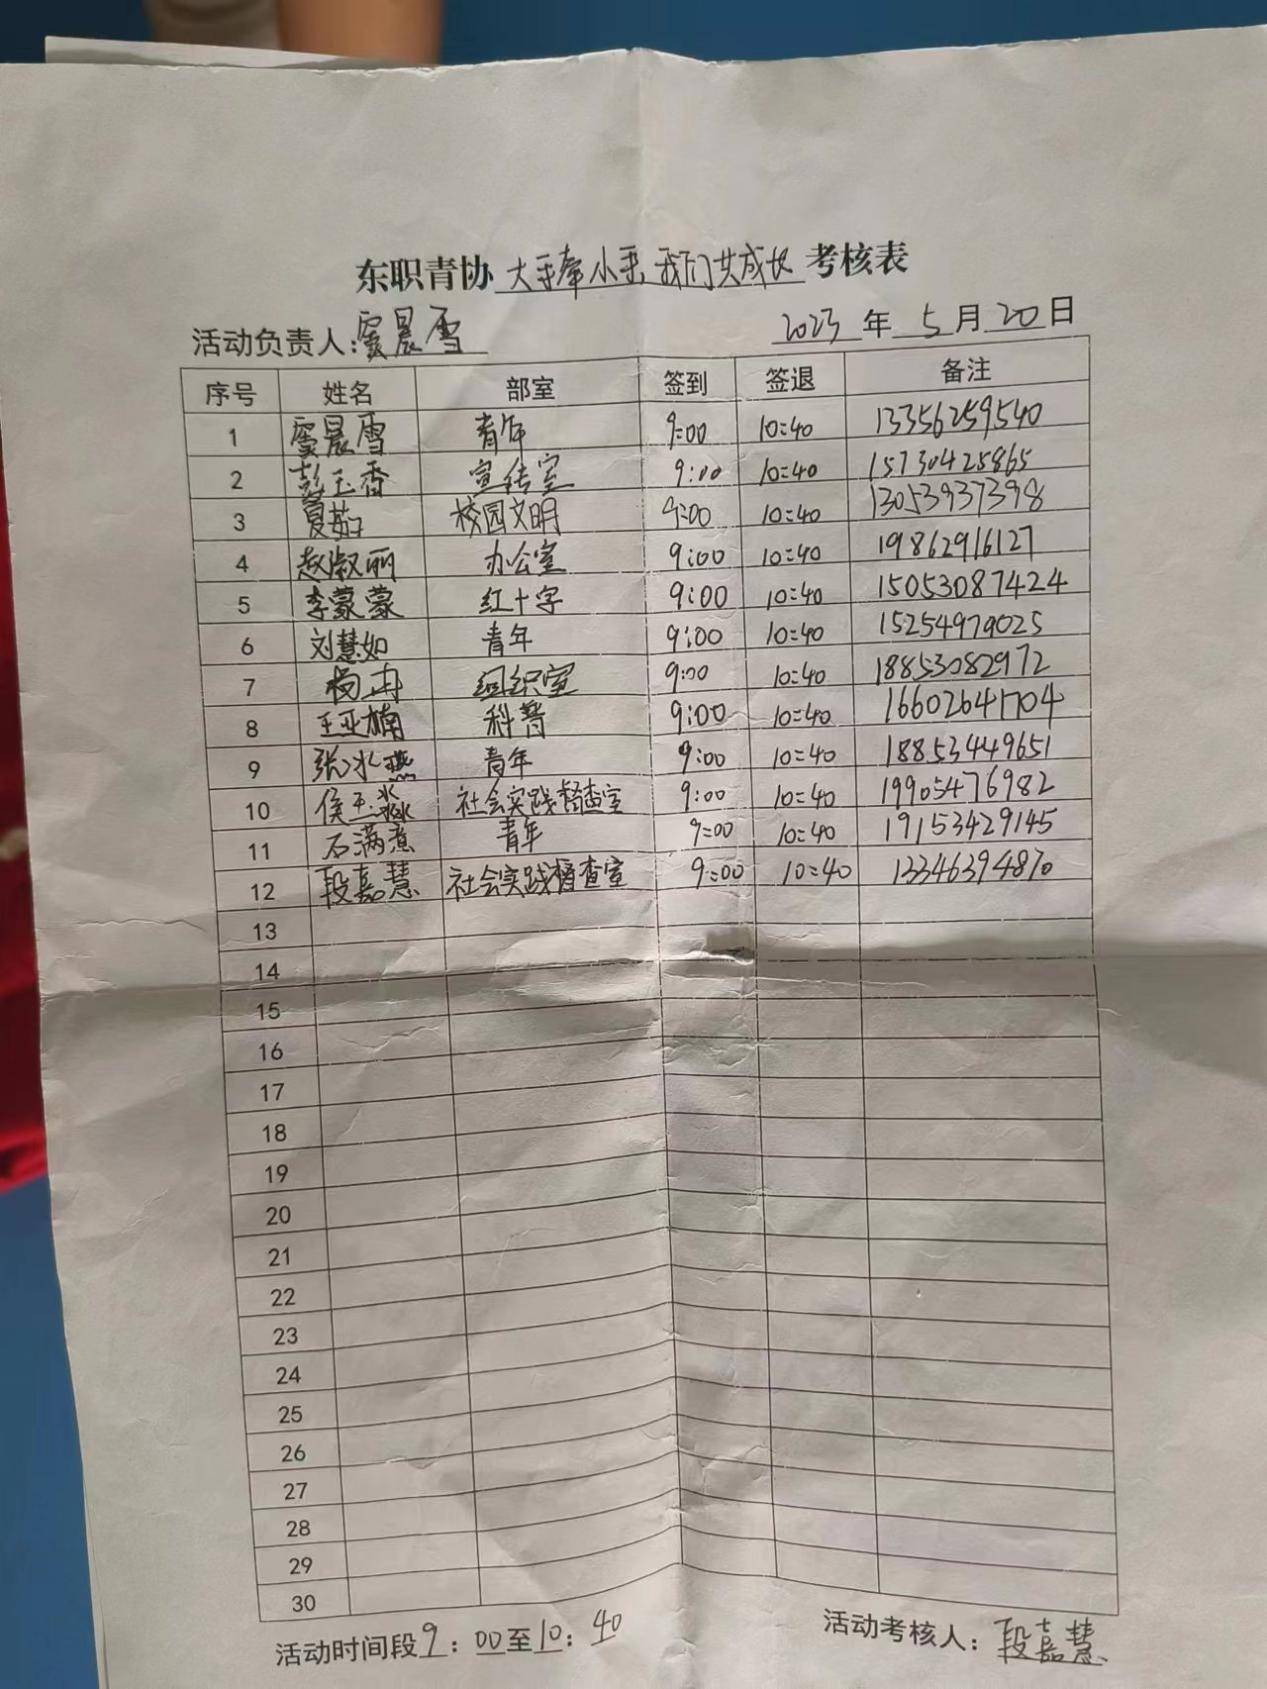 东职青协 大手牵小手,我们共成长 考核表
活动负责人:窦晨雪 2023年5月20日
序号 姓名 部室 签到 签退 备注
1 窦晨雪 青年 9:00 10:40 13356259540
2 彭玉香 宣传室 9:00 10:40 15730425865
3 夏茹 校园文明 9:00 10:40 13053937398
4 赵淑丽 办公室 9:00 10:40 19862916127
5 李蒙蒙 红十字 9:00 10:40 15053087424
6 刘慧如 青年 9:00 10:40 15254979025
7 杨冉 组织室 9:00 10:40 18853082972
8 王亚楠 科普 9:00 10:40 16602641704
9 张冰燕 青年 9:00 10:40 18853449651
10 侯玉淼 社会实践督查室 9:00 10:40 19905476982
11 石满意 青年 9:00 10:40 19153429145
12 段嘉慧 社会实践督查室 9:00 10:40 13346394870
13
14
15
16
17
18
19
20
21
22
23
24
25
26
27
28
29
30
活动时间段9:00至10:40 活动考核人:段嘉慧